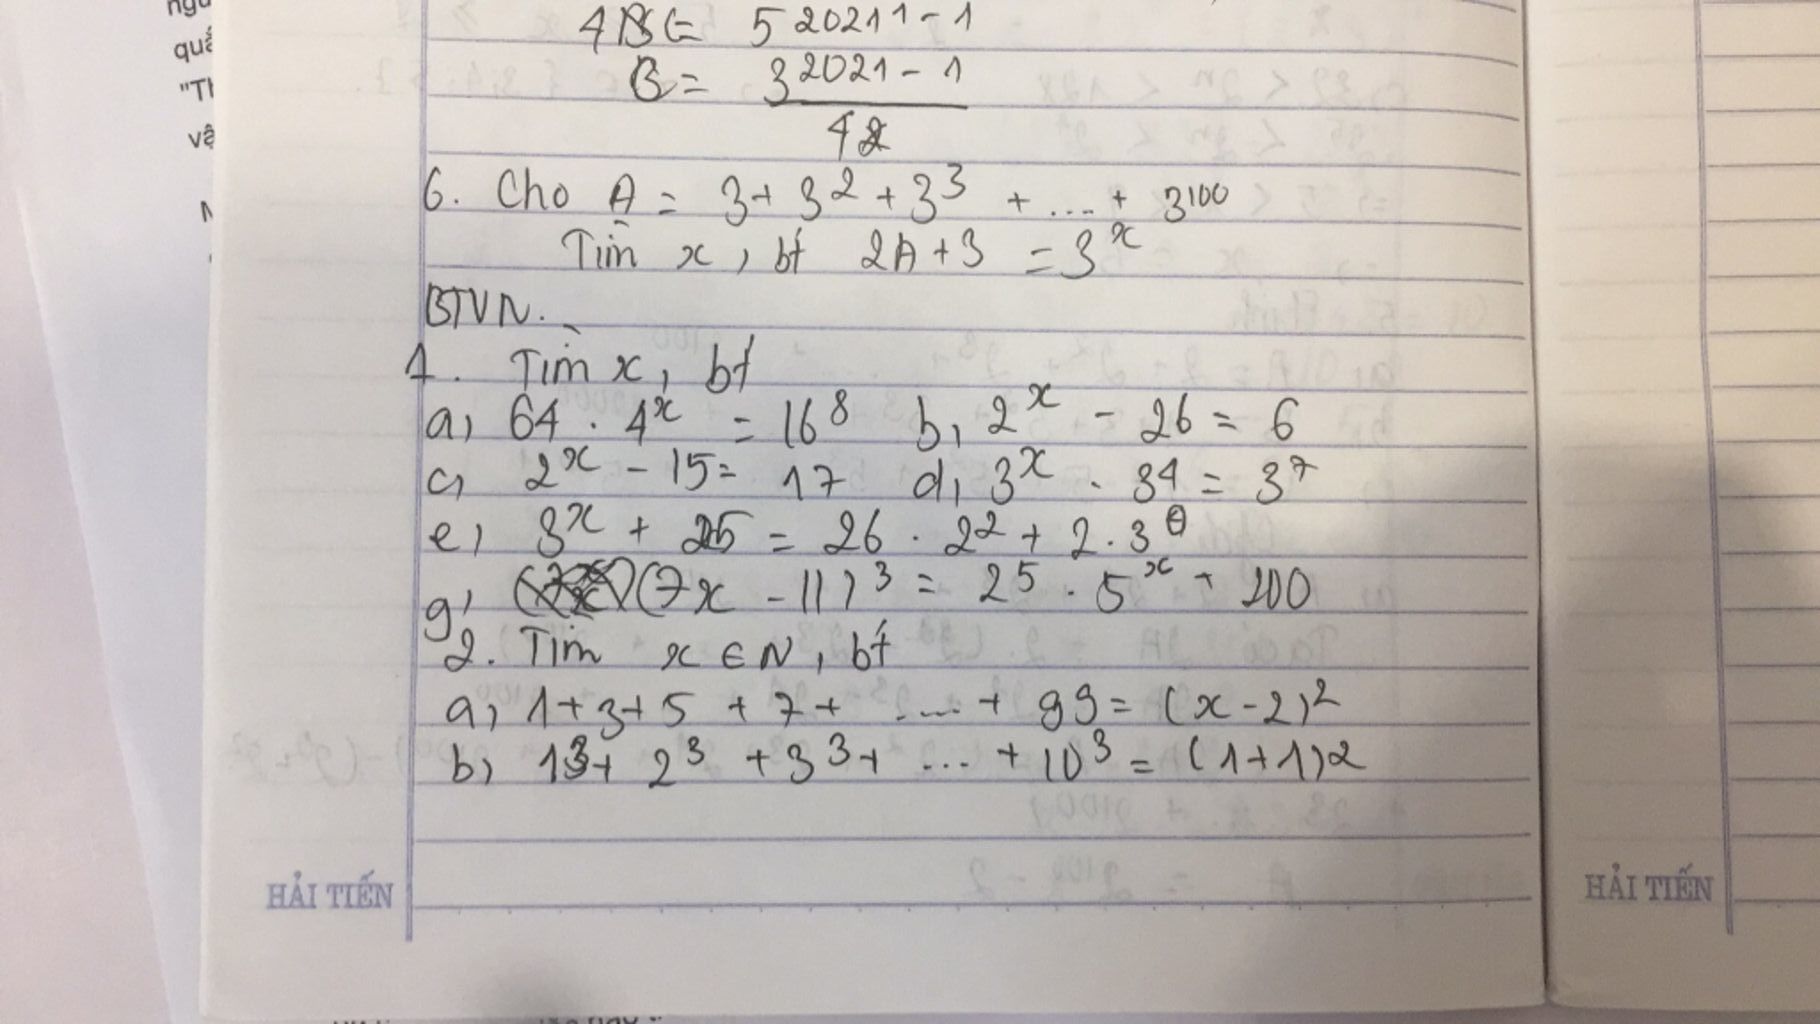 quả
"Th
vậ
4B = 5 2021 1 - 1
B = 3 2021 - 1
4 2
6. Cho A = 3 + 3² + 3³ + .... + 3¹⁰⁰
Tìm x, bt 2A + 3 = 3ˣ
BTVN.
1. Tìm x, bt
a, 64 . 4ˣ = 16⁸ b, 2ˣ - 26 = 6
c, 2ˣ - 15 = 17 d, 3ˣ . 3⁴ = 3⁷
e, 3ˣ + 25 = 26 . 2² + 2 . 3⁰
g, (7x - 11)³ = 2⁵ . 5ˣ + 200
2. Tìm x ∈ N, bt
a, 1 + 3 + 5 + 7 + .... + 99 = (x - 2)²
b, 1³ + 2³ + 3³ + ... + 10³ = (1 + 1)2
HẢI TIẾN
HẢI TIẾN